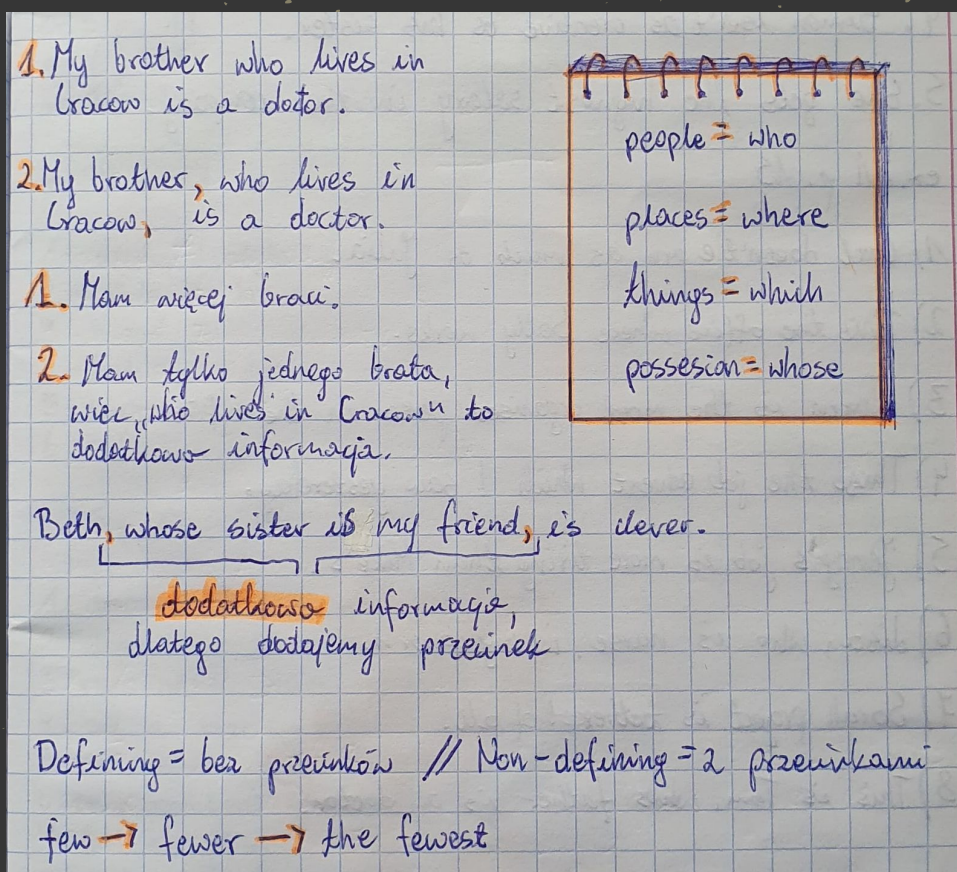 1. My brother who lives in
Cracow is a doctor.
2. My brother, who lives in
Cracow, is a doctor.
1. Mam więcej braci.
2. Mam tylko jednego brata,
więc „who lives in Cracow" to
dodatkowa informacja.
people = who
places = where
things = which
possesion = whose
Beth, whose sister is my friend, is clever.
dodatkowa informacja,
dlatego dodajemy przecinek
Defining = bez przecinków // Non-defining = z przecinkami
few → fewer → the fewest